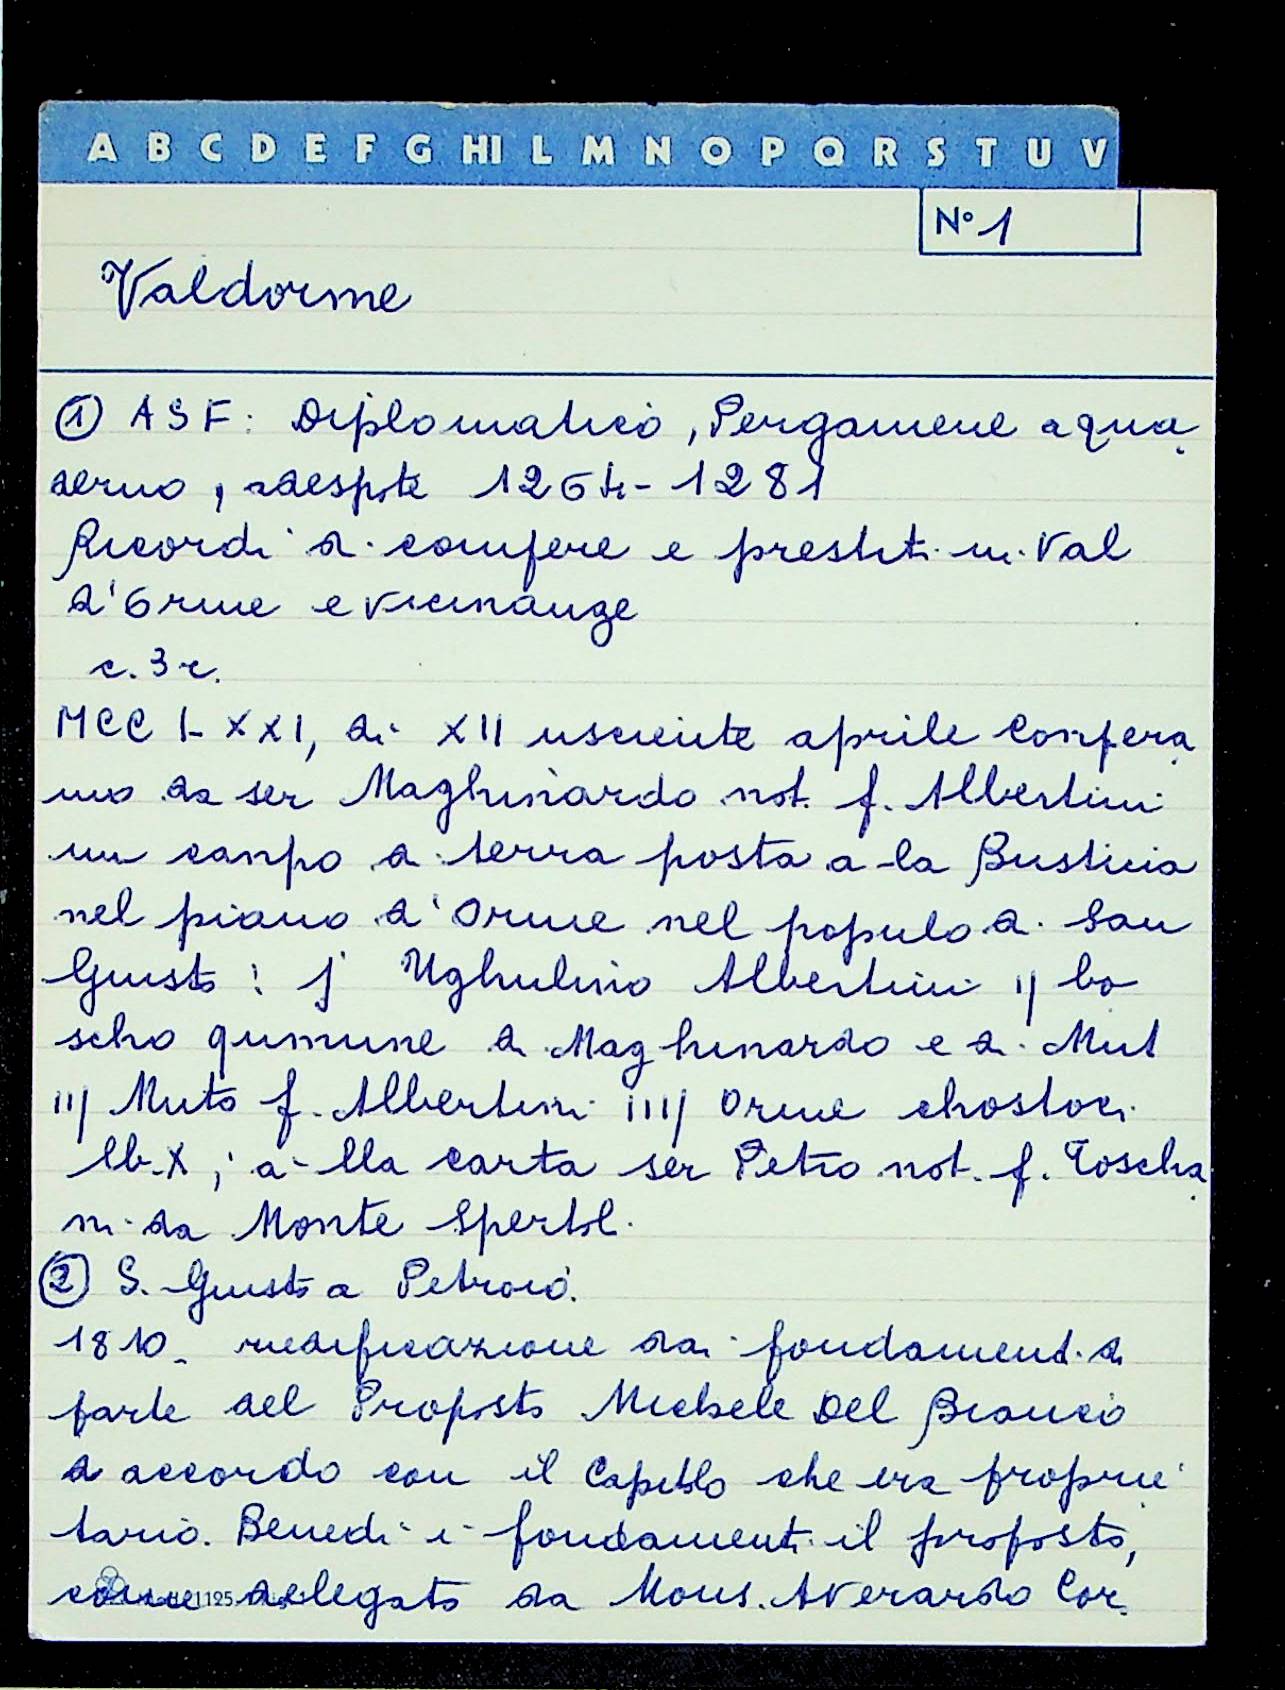 A B C D E F G HI L M N O P Q R S T U V
N° 1
Valdorme
① ASF: Diplomatico, Pergamene a qua
derno, adespote 1264-1281
Ricordi di compere e prestiti in Val
d'Orme e vicinanze
c. 3 r.
MCC LXXI, di XII usciente aprile Conpera
mo da ser Maghinardo not. f. Albertini
un canpo di terra posta a la Busticia
nel piano d'Orme nel populo di San
Giusto: j Ughulino Albertini ij bo
scho qumune di Maghinardo e di Mut
iij Muto f. Albertini iiij Orme chostoci
lb. X; a lla carta ser Petro not. f. Toscha
ni da Monte Spertol.
② S. Giusto a Petroio.
1810. riedificazione dai fondamenti di
parte del Proposto Michele Del Bianco
d accordo con il Capitolo che era proprie
tario. Benedì i fondamenti il proposto,
come delegato da Mons. Averardo Cor.